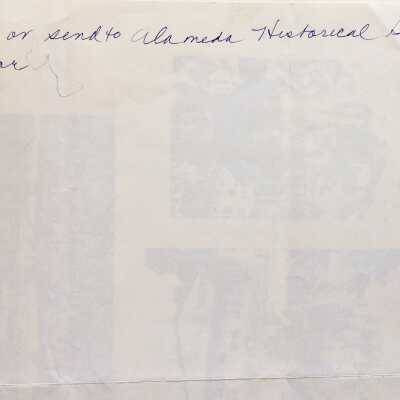 or send to Alameda Historical